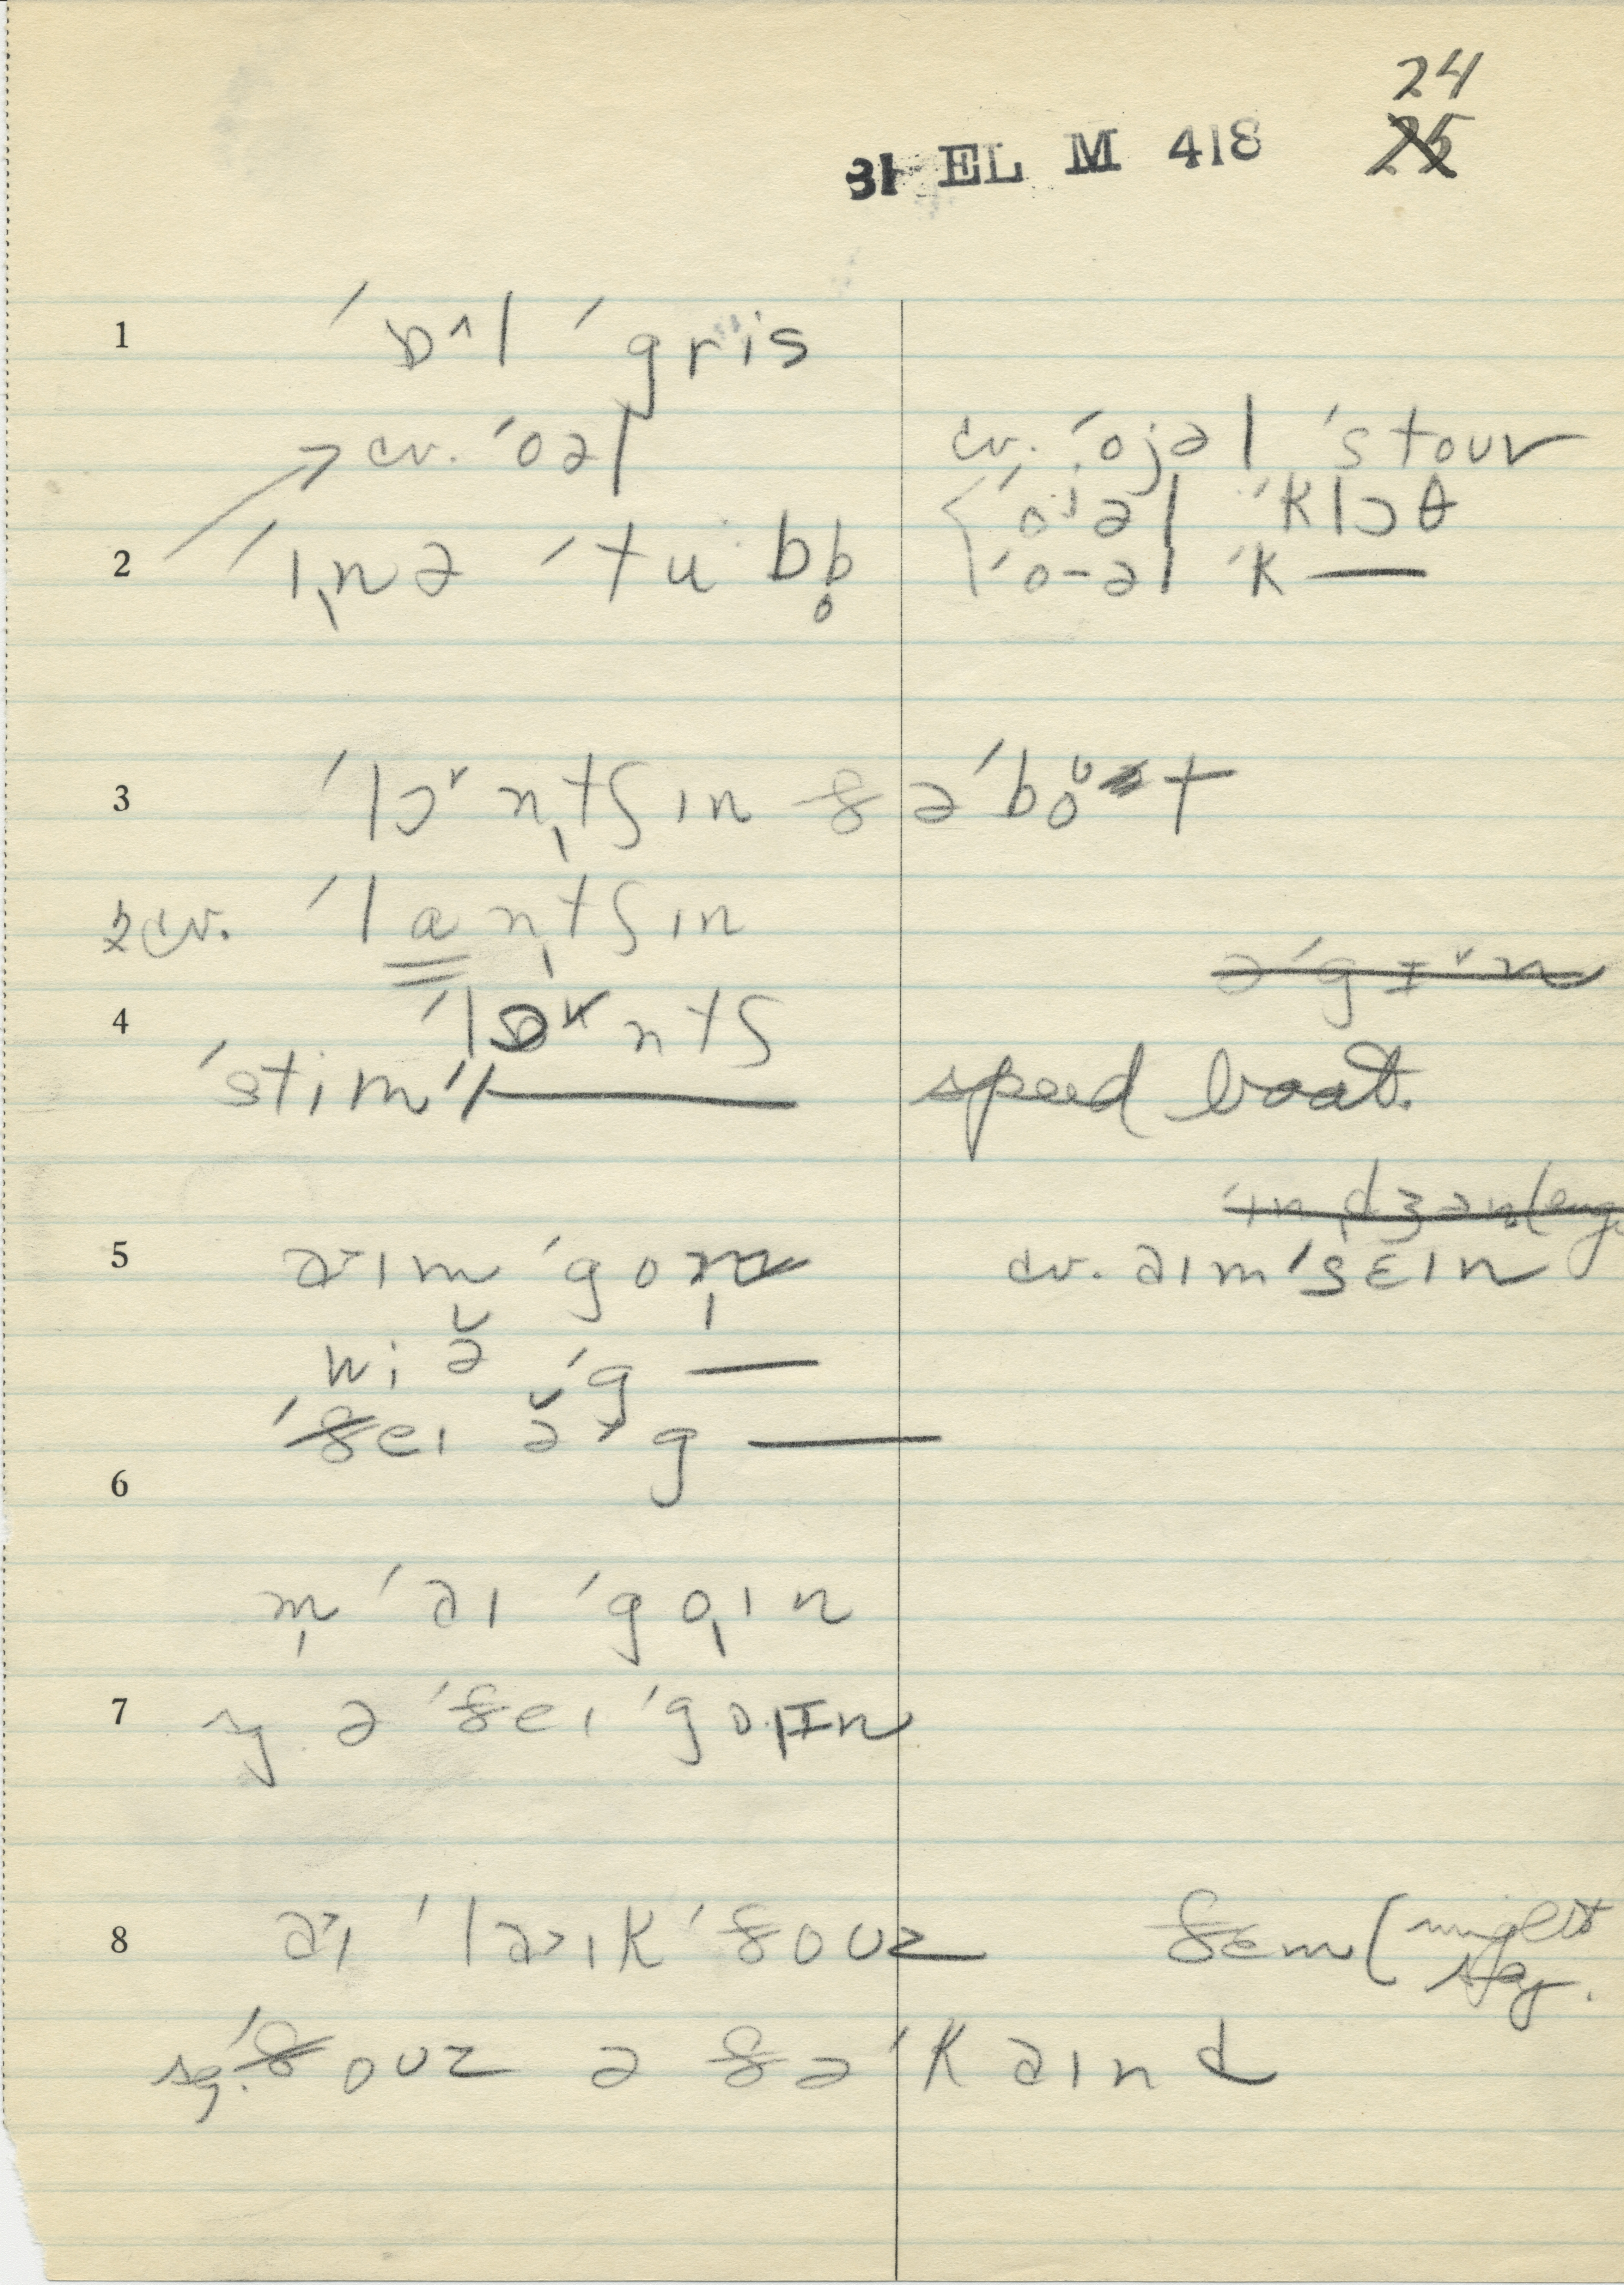 24
31 EL M 418 25
1 ˈɒ^l ˈgris
cv. ˈoəl cv. ˈojəl ˈstour
ˈoʲəl ˈklɔθ
2 ˈɪ̩nə ˈtu·bb̥ ˈo-əl ˈk—
3 ˈlɔ˅n̩tʃɪn ðəˈboᶸt
2 cv. ˈlan̩tʃɪn
əˈgɪ˅n
4 ˈlɒ˅ntʃ
ˈstimˈl— speed boat.
5 ə˃ɪm ˈgon̩ cv. əɪmˈsɛɪn
wiə̆ ˈg—
ˈðeɪ ə̆ ˈg—
6
m̩ ˈəɪ ˈgo̩ɪn
7 sg. ə ˈðeɪ ˈgo̩ɪn
8 ə˃ɪ ˈlə˃ɪk ˈðouz ðem (might say.
sg. ˈðouz ə ðəˈkəɪnd